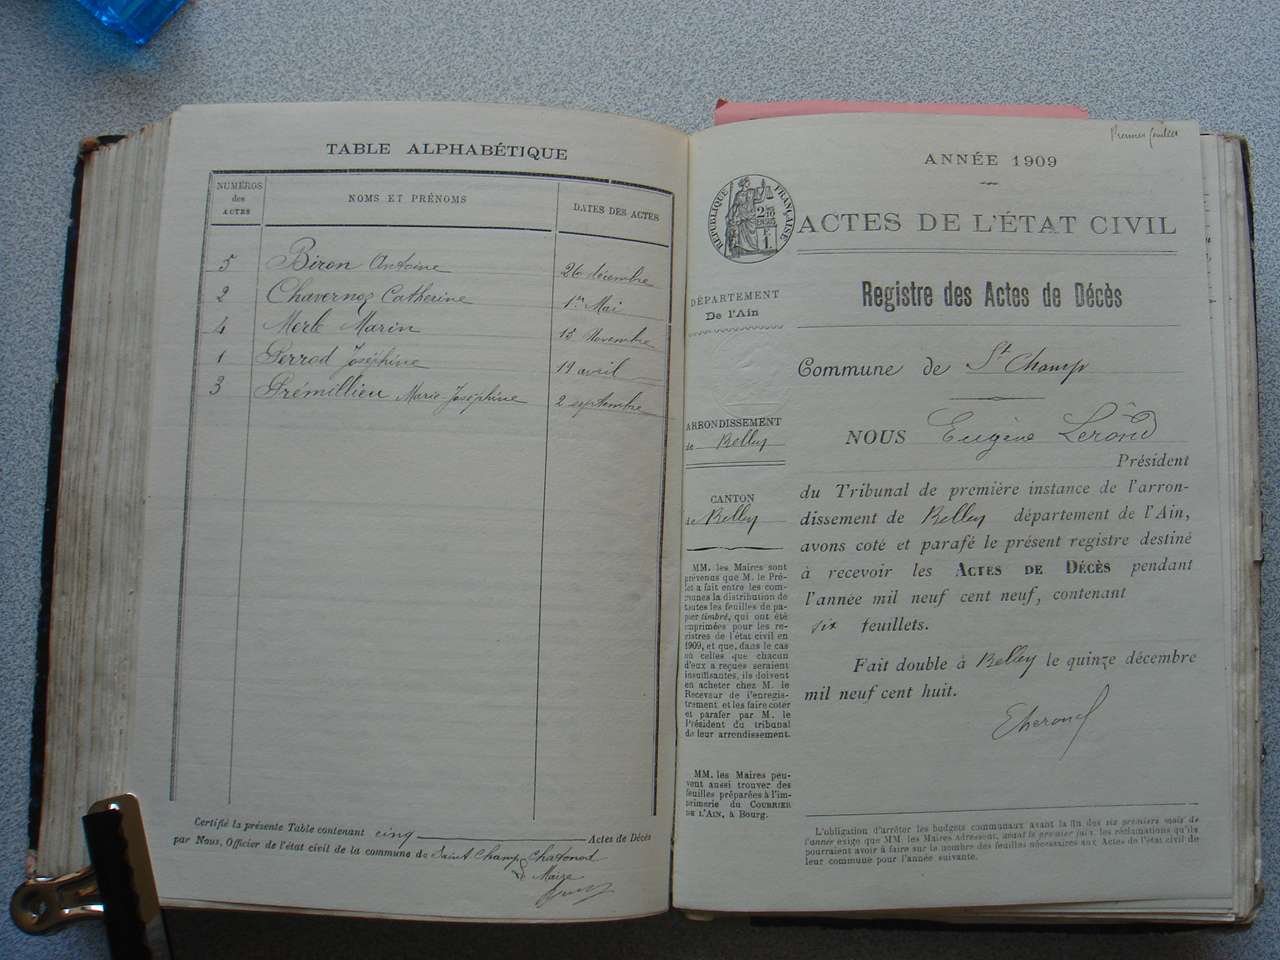 TABLE ALPHABÉTIQUE
NUMÉROS
des
ACTES
NOMS ET PRÉNOMS
DATES DES ACTES
5 Biron Antoine 26 décembre
2 Chavernoz Catherine 1er Mai
4 Merle Marin 15 Novembre
1 Perrod Joséphine 19 avril
3 Trémillieu Marie Joséphine 2 septembre
Certifié la présente Table contenant cinq Actes de Décès
par Nous, Officier de l'état civil de la commune de Saint Champ Chatonod
Maire
Premier feuillet
ANNÉE 1909
RÉPUBLIQUE FRANÇAISE
2/10 EN SUS
ACTES DE L'ÉTAT CIVIL
DÉPARTEMENT
De l'Ain
Registre des Actes de Décès
Commune de St Champ
ARRONDISSEMENT
de Belley
CANTON
de Belley
NOUS Eugène Lerond
Président
du Tribunal de première instance de l'arron-
dissement de Belley département de l'Ain,
avons coté et parafé le présent registre destiné
à recevoir les ACTES DE DÉCÈS pendant
l'année mil neuf cent neuf, contenant
six feuillets.
Fait double à Belley le quinze décembre
mil neuf cent huit.
MM. les Maires sont
prévenus que M. le Pré-
fet a fait entre les com-
munes la distribution de
toutes les feuilles de pa-
pier timbré, qui ont été
imprimées pour les re-
gistres de l'état civil en
1909, et que, dans le cas
où celles que chacun
d'eux a reçues seraient
insuffisantes, ils doivent
en acheter chez M. le
Receveur de l'enregis-
trement et les faire coter
et parafer par M. le
Président du tribunal
de leur arrondissement.
MM. les Maires peu-
vent aussi trouver des
feuilles préparées à l'im-
primerie du COURRIER
DE L'AIN, à Bourg.
L'obligation d'arrêter les budgets communaux avant la fin des six premiers mois de
l'année exige que MM. les Maires adressent, avant le premier juin, les réclamations qu'ils
pourraient avoir à faire sur le nombre des feuilles nécessaires aux Actes de l'état civil de
leur commune pour l'année suivante.